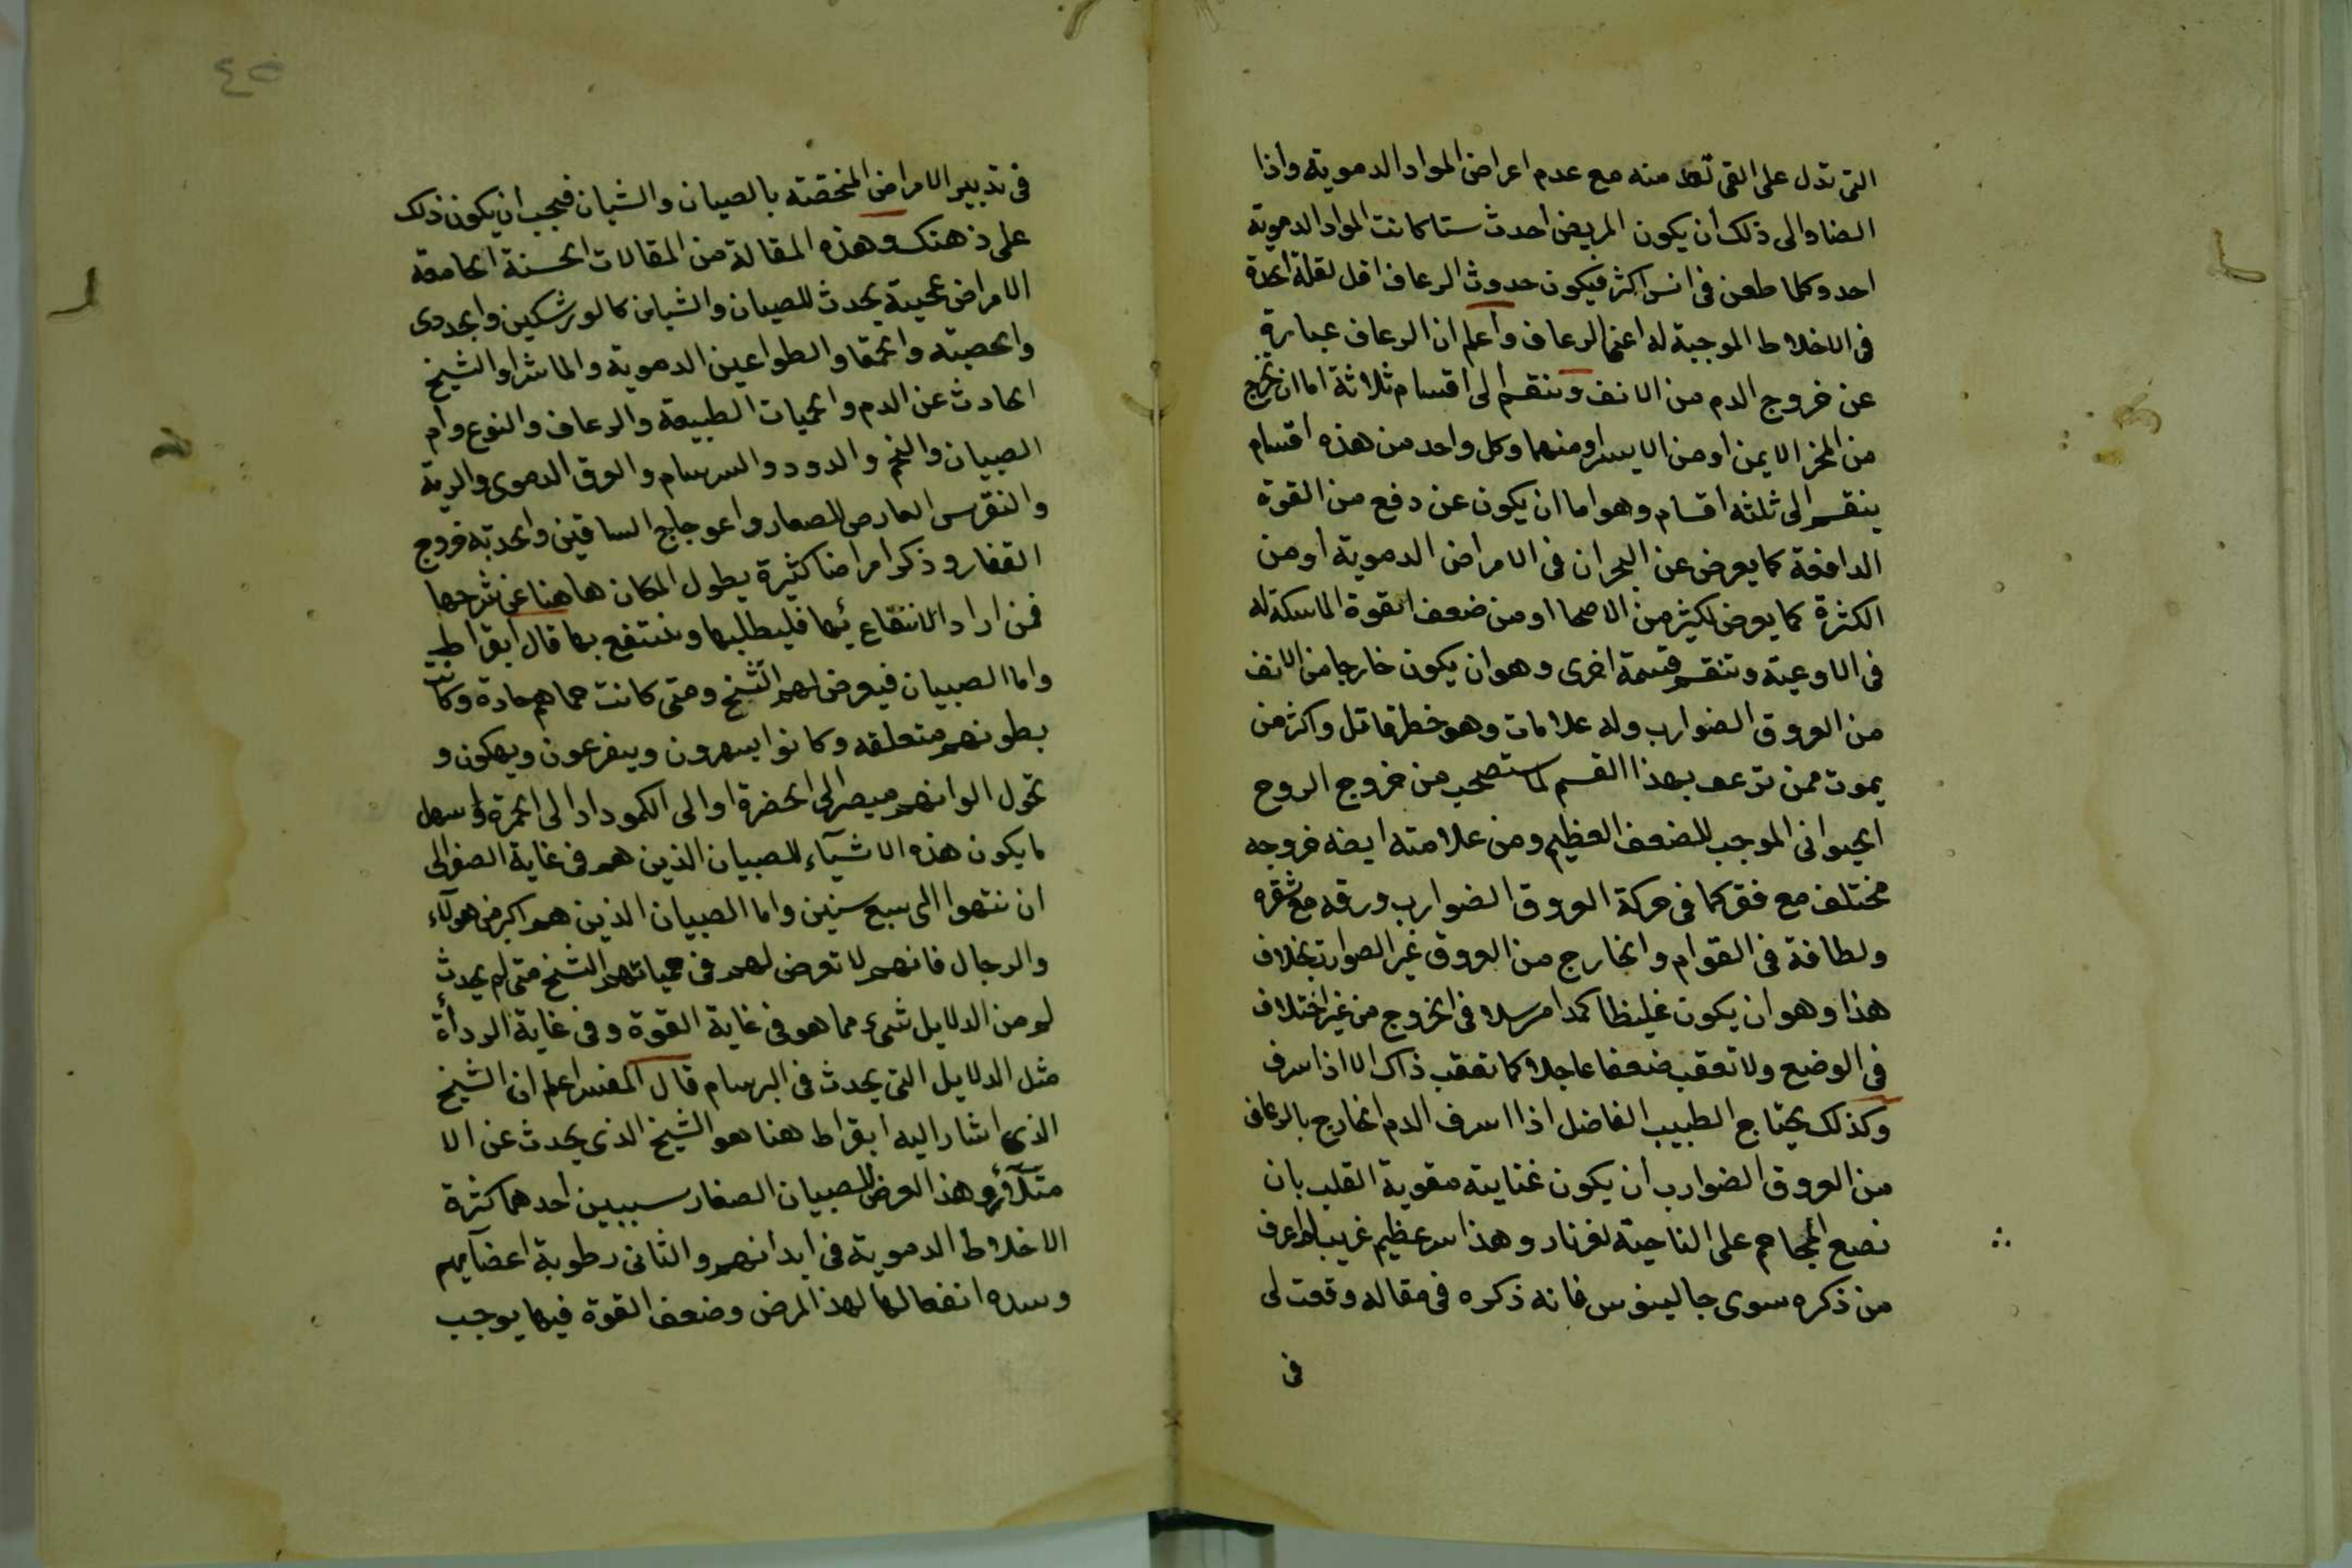 التى تدل على القى تعد منه مع عدم اعراض المواد الدموية واذا
انضا والى ذلك ان يكون المريض احدث ستا كانت المواد الدموية
احد وكلما طعن فى انس اكثر فيكون حدوث الرعاف اقل لقلة الحدة
فى الاخلاط الموجبة له اعنى الرعاف واعلم ان الرعاف عبارة
عن خروج الدم من الانف وينقسم الى اقسام ثلاثة اما ان يخرج
من المنخر الايمن او من الايسر او منهما وكل واحد من هذه اقسام
ينقسم الى ثلثه اقسام وهو اما ان يكون عن دفع من القوة
الدافعة كما يعرض عن البحران فى الامراض الدموية او من
الكثرة كما يعرض لكثير من الاصحا او من ضعف القوة الماسكة له
فى الاوعية وتنقسم قسمة اخرى وهو ان يكون خارجا من الانف
من العروق الضوارب وله علامات وهو خطر قاتل واكثر من
يموت ممن ترعف بهذا القسم لما ستصحب من خروج الروح
الحيوانى الموجب للضعف العظيم ومن علامته ايضه خروجه
مختلف مع فقر كما فى حركة العروق الضوارب ورقه مع شقره
ولطافة فى القوام والخارج من العروق غير الضوارب بخلاف
هذا وهو ان يكون غليظا كمدا مرسلا فى الخروج من غير اختلاف
فى الوضع ولا تعقب ضعفا عاجلا كما تعقب ذاك الا اذا سرف
وكذلك يحتاج الطبيب الفاضل اذا اسرف الدم الخارج بالرعاف
من العروق الضوارب ان يكون عنايته مقوية القلب بان
نضع المحاجم على الناحية لفرنار وهذا سر عظيم غريب لم اعرف
من ذكره سوى جالينوس فانه ذكره فى مقاله وقعت لى
فى
٤٥
فى تدبير الامراض المختصة بالصبيان والشبان فيجب ان يكون ذلك
على ذهنك وهذه المقالة من المقالات الحسنة الجامعة
الامراض عجيبة يحدث للصبيان والشبان كالورشكين والجدرى
والحصبة والحمقا والطواعين الدموية والماشرا والشيخ
الحادث عن الدم والحميات الطبيعة والرعاف والنوع وام
الصبيان والدود والسرسام والعرق الدموى والرية
والنقرس العارض للصغار واعوجاج الساقين والحدبة فروج
القفار وذكر امراضا كثيرة يطول المكان هاهنا عن شرحها
فمن اراد الانتقاع بها فليطلبها وينتفع بها قال ابقراط
واما الصبيان فيعرض لهم التشنج ومتى كانت حماهم حادة وكانت
بطونهم متعلقه وكانوا يسهرون ويفزعون ويبكون و
تحول الوانهم فيصر الى الخضرة او الى الكموداد الى الحمرة واسهل
ما يكون هذه الاشيآء للصبيان الذين هم فى غاية الصغر الى
ان ننتهوا الى سبع سنين واما الصبيان الذين هم اكبر من هولآء
والرجال فانهم لا تعرض لهم فى حمياتهم التشنج متى لم يحدث
لهم من الدلايل شىء مما هو فى غاية القوة وفى غاية الردأة
مثل الدلايل التى يحدث فى البرسام قال المفسر اعلم ان الشيخ
الذى اشار اليه ابقراط هنا هو الشيخ الذى يحدث عن الا
متلآ وهذا العرض للصبيان الصغار سببين احدهما كثرة
الاخلاط الدموية فى ابدانهم والثانى رطوبة اعضآيهم
وسده انفعالها لهذا المرض وضعف القوة فيها يوجب